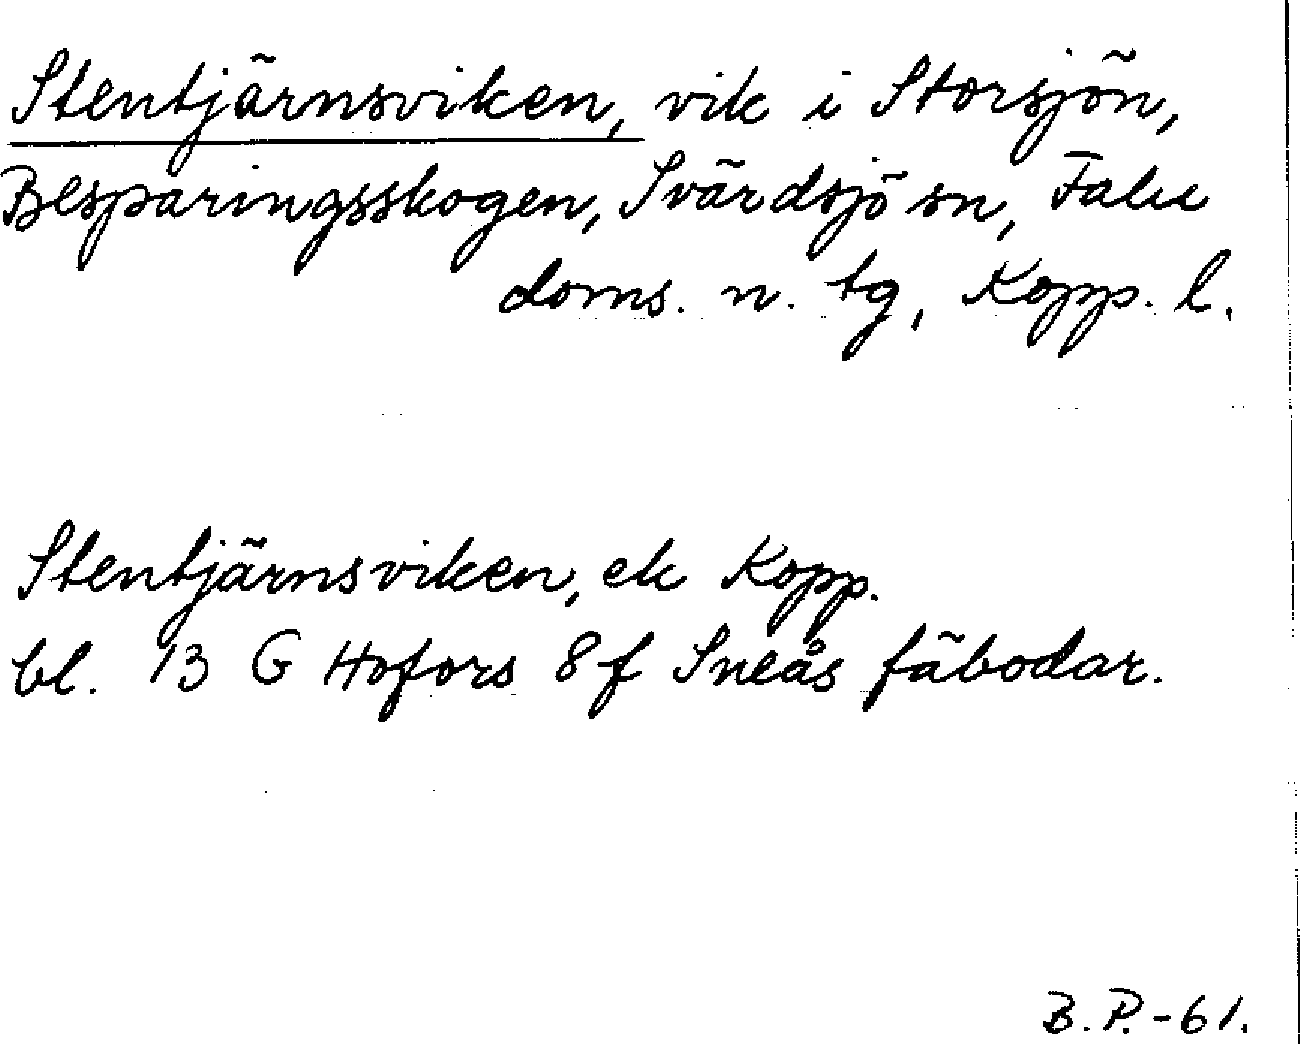 Stentjärnsviken, vik i Storsjön,
Besparingsskogen, Svärdsjö sn, Falu
doms. n. tg, Kopp. l.
Stentjärnsviken, ek Kopp.
bl. 13 G Hofors 8f Sneås fäbodar.
B.P.-61.